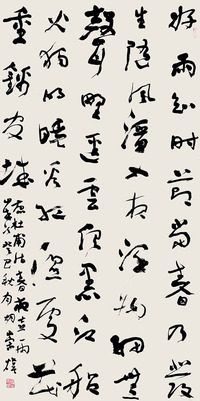 好雨知時節當春乃發
生隨風潛入夜潤物細無
聲野徑雲俱黑江船
火獨明曉看紅濕處花
重錦官城
唐杜甫詩春夜喜雨
癸巳秋月